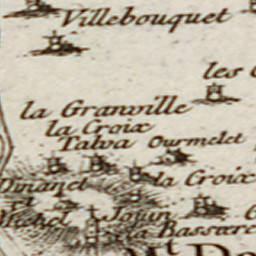 Villebouquet
les
la Granville
la Croix
Talva Ourmelet
Dinanet
la Croix
et
Michel Jouin
la Bassare
Mt